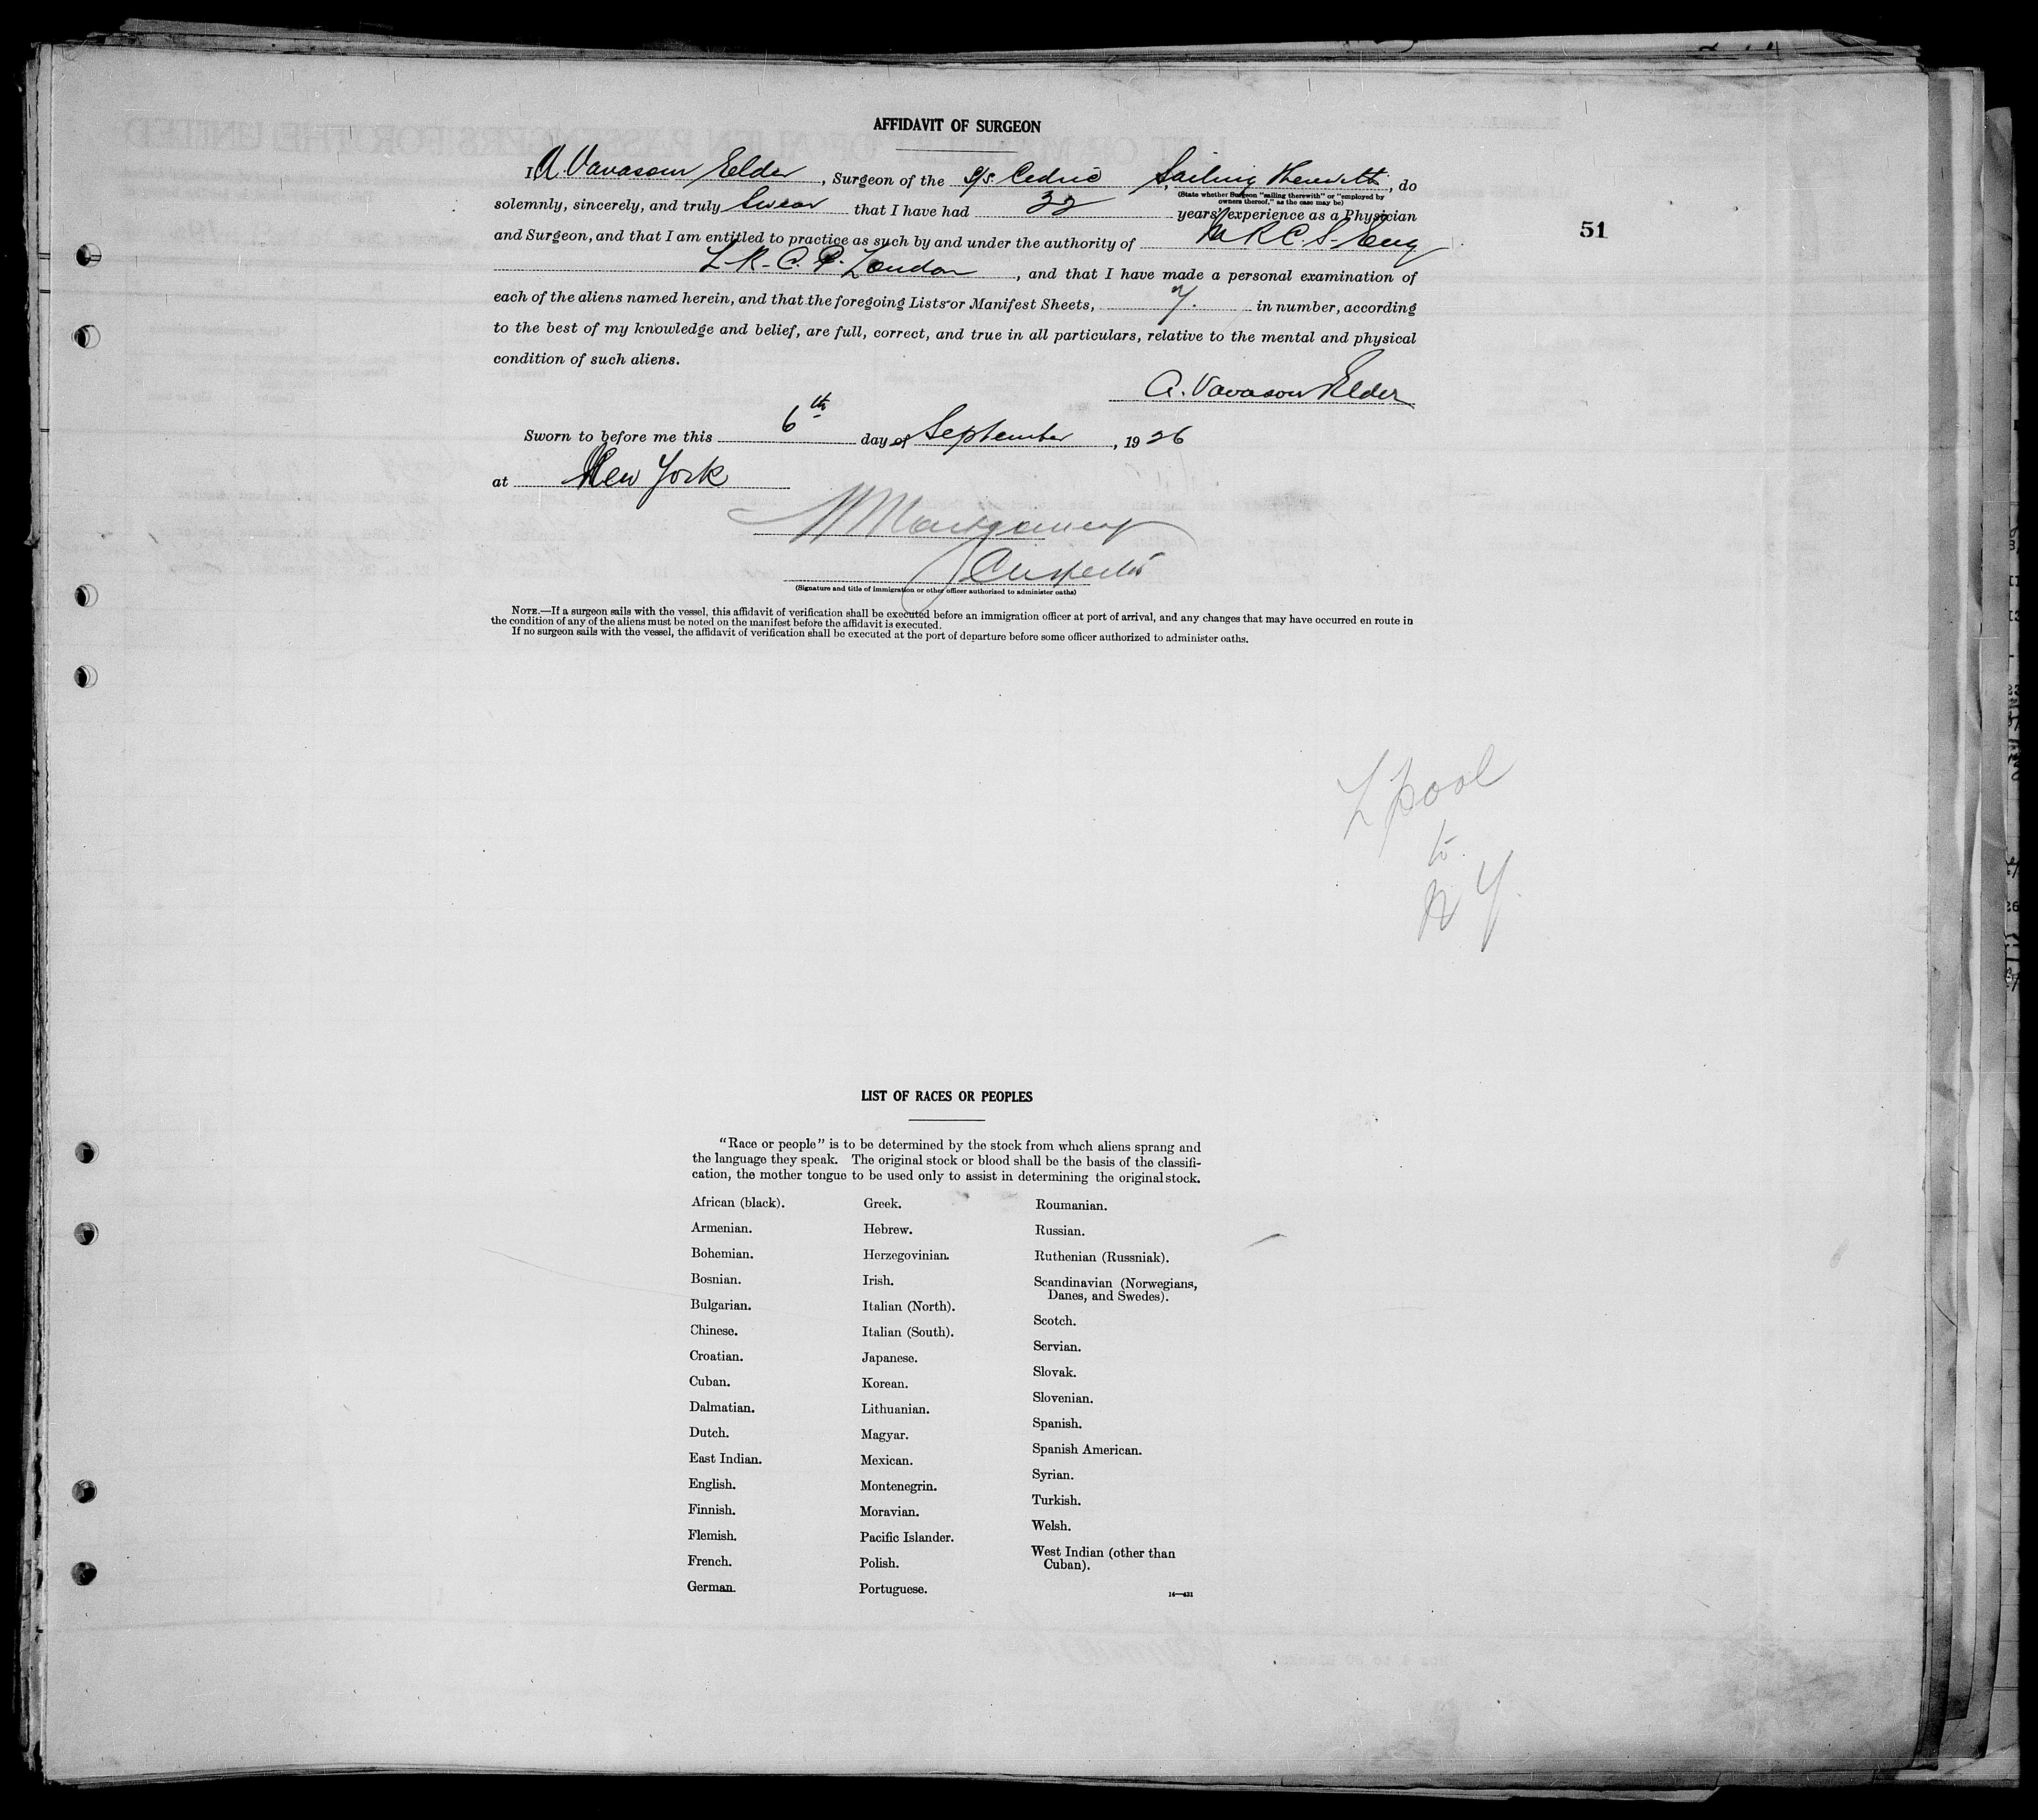 AFFIDAVIT OF SURGEON
I A. Vavasour Elder, Surgeon of the S/S. Cedric Sailing Therewith, do
(State whether Surgeon "sailing therewith" or "employed by
owners thereof," as the case may be)
solemnly, sincerely, and truly Swear that I have had 32 years' experience as a Physician
and Surgeon, and that I am entitled to practice as such by and under the authority of M R C. S. Eng
L. R. C. P. London, and that I have made a personal examination of
each of the aliens named herein, and that the foregoing Lists or Manifest Sheets, 7. in number, according
to the best of my knowledge and belief, are full, correct, and true in all particulars, relative to the mental and physical
condition of such aliens.
A. Vavasour Elder
Sworn to before me this 6th day of September, 1926
at New York
Montgomery
Inspector
(Signature and title of immigration or other officer authorized to administer oaths)
NOTE.—If a surgeon sails with the vessel, this affidavit of verification shall be executed before an immigration officer at port of arrival, and any changes that may have occurred en route in
the condition of any of the aliens must be noted on the manifest before the affidavit is executed.
If no surgeon sails with the vessel, the affidavit of verification shall be executed at the port of departure before some officer authorized to administer oaths.
51
L'pool
to
N Y.
LIST OF RACES OR PEOPLES
"Race or people" is to be determined by the stock from which aliens sprang and
the language they speak. The original stock or blood shall be the basis of the classifi-
cation, the mother tongue to be used only to assist in determining the original stock.
African (black).
Armenian.
Bohemian.
Bosnian.
Bulgarian.
Chinese.
Croatian.
Cuban.
Dalmatian.
Dutch.
East Indian.
English.
Finnish.
Flemish.
French.
German.
Greek.
Hebrew.
Herzegovinian.
Irish.
Italian (North).
Italian (South).
Japanese.
Korean.
Lithuanian.
Magyar.
Mexican.
Montenegrin.
Moravian.
Pacific Islander.
Polish.
Portuguese.
Roumanian.
Russian.
Ruthenian (Russniak).
Scandinavian (Norwegians,
Danes, and Swedes).
Scotch.
Servian.
Slovak.
Slovenian.
Spanish.
Spanish American.
Syrian.
Turkish.
Welsh.
West Indian (other than
Cuban).
14—431